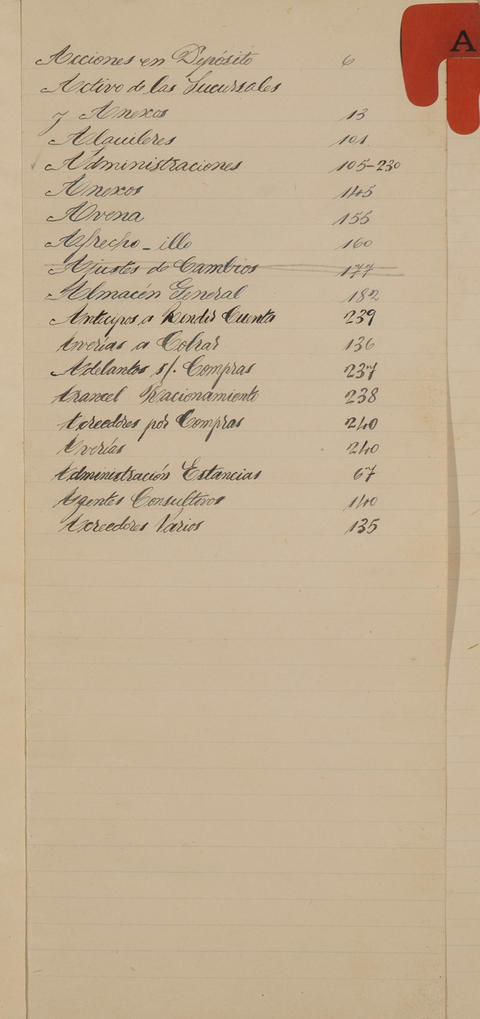 A
Acciones en Depósito 6
Activo de las Sucursales
y Anexos 13
Alquileres 101
Administraciones 105-230
Anexos 145
Avena 155
Afrecho-illo 160
Ajustes de Cambios 177
Almacén General 182
Anticipos a Rendir Cuenta 239
Averías a Cobrar 136
Adelantos s/. Compras 237
Arancel Racionamiento 238
Acreedores por Compras 240
Averías 240
Administración Estancias 67
Agentes Consultivos 140
Acreedores Varios 135